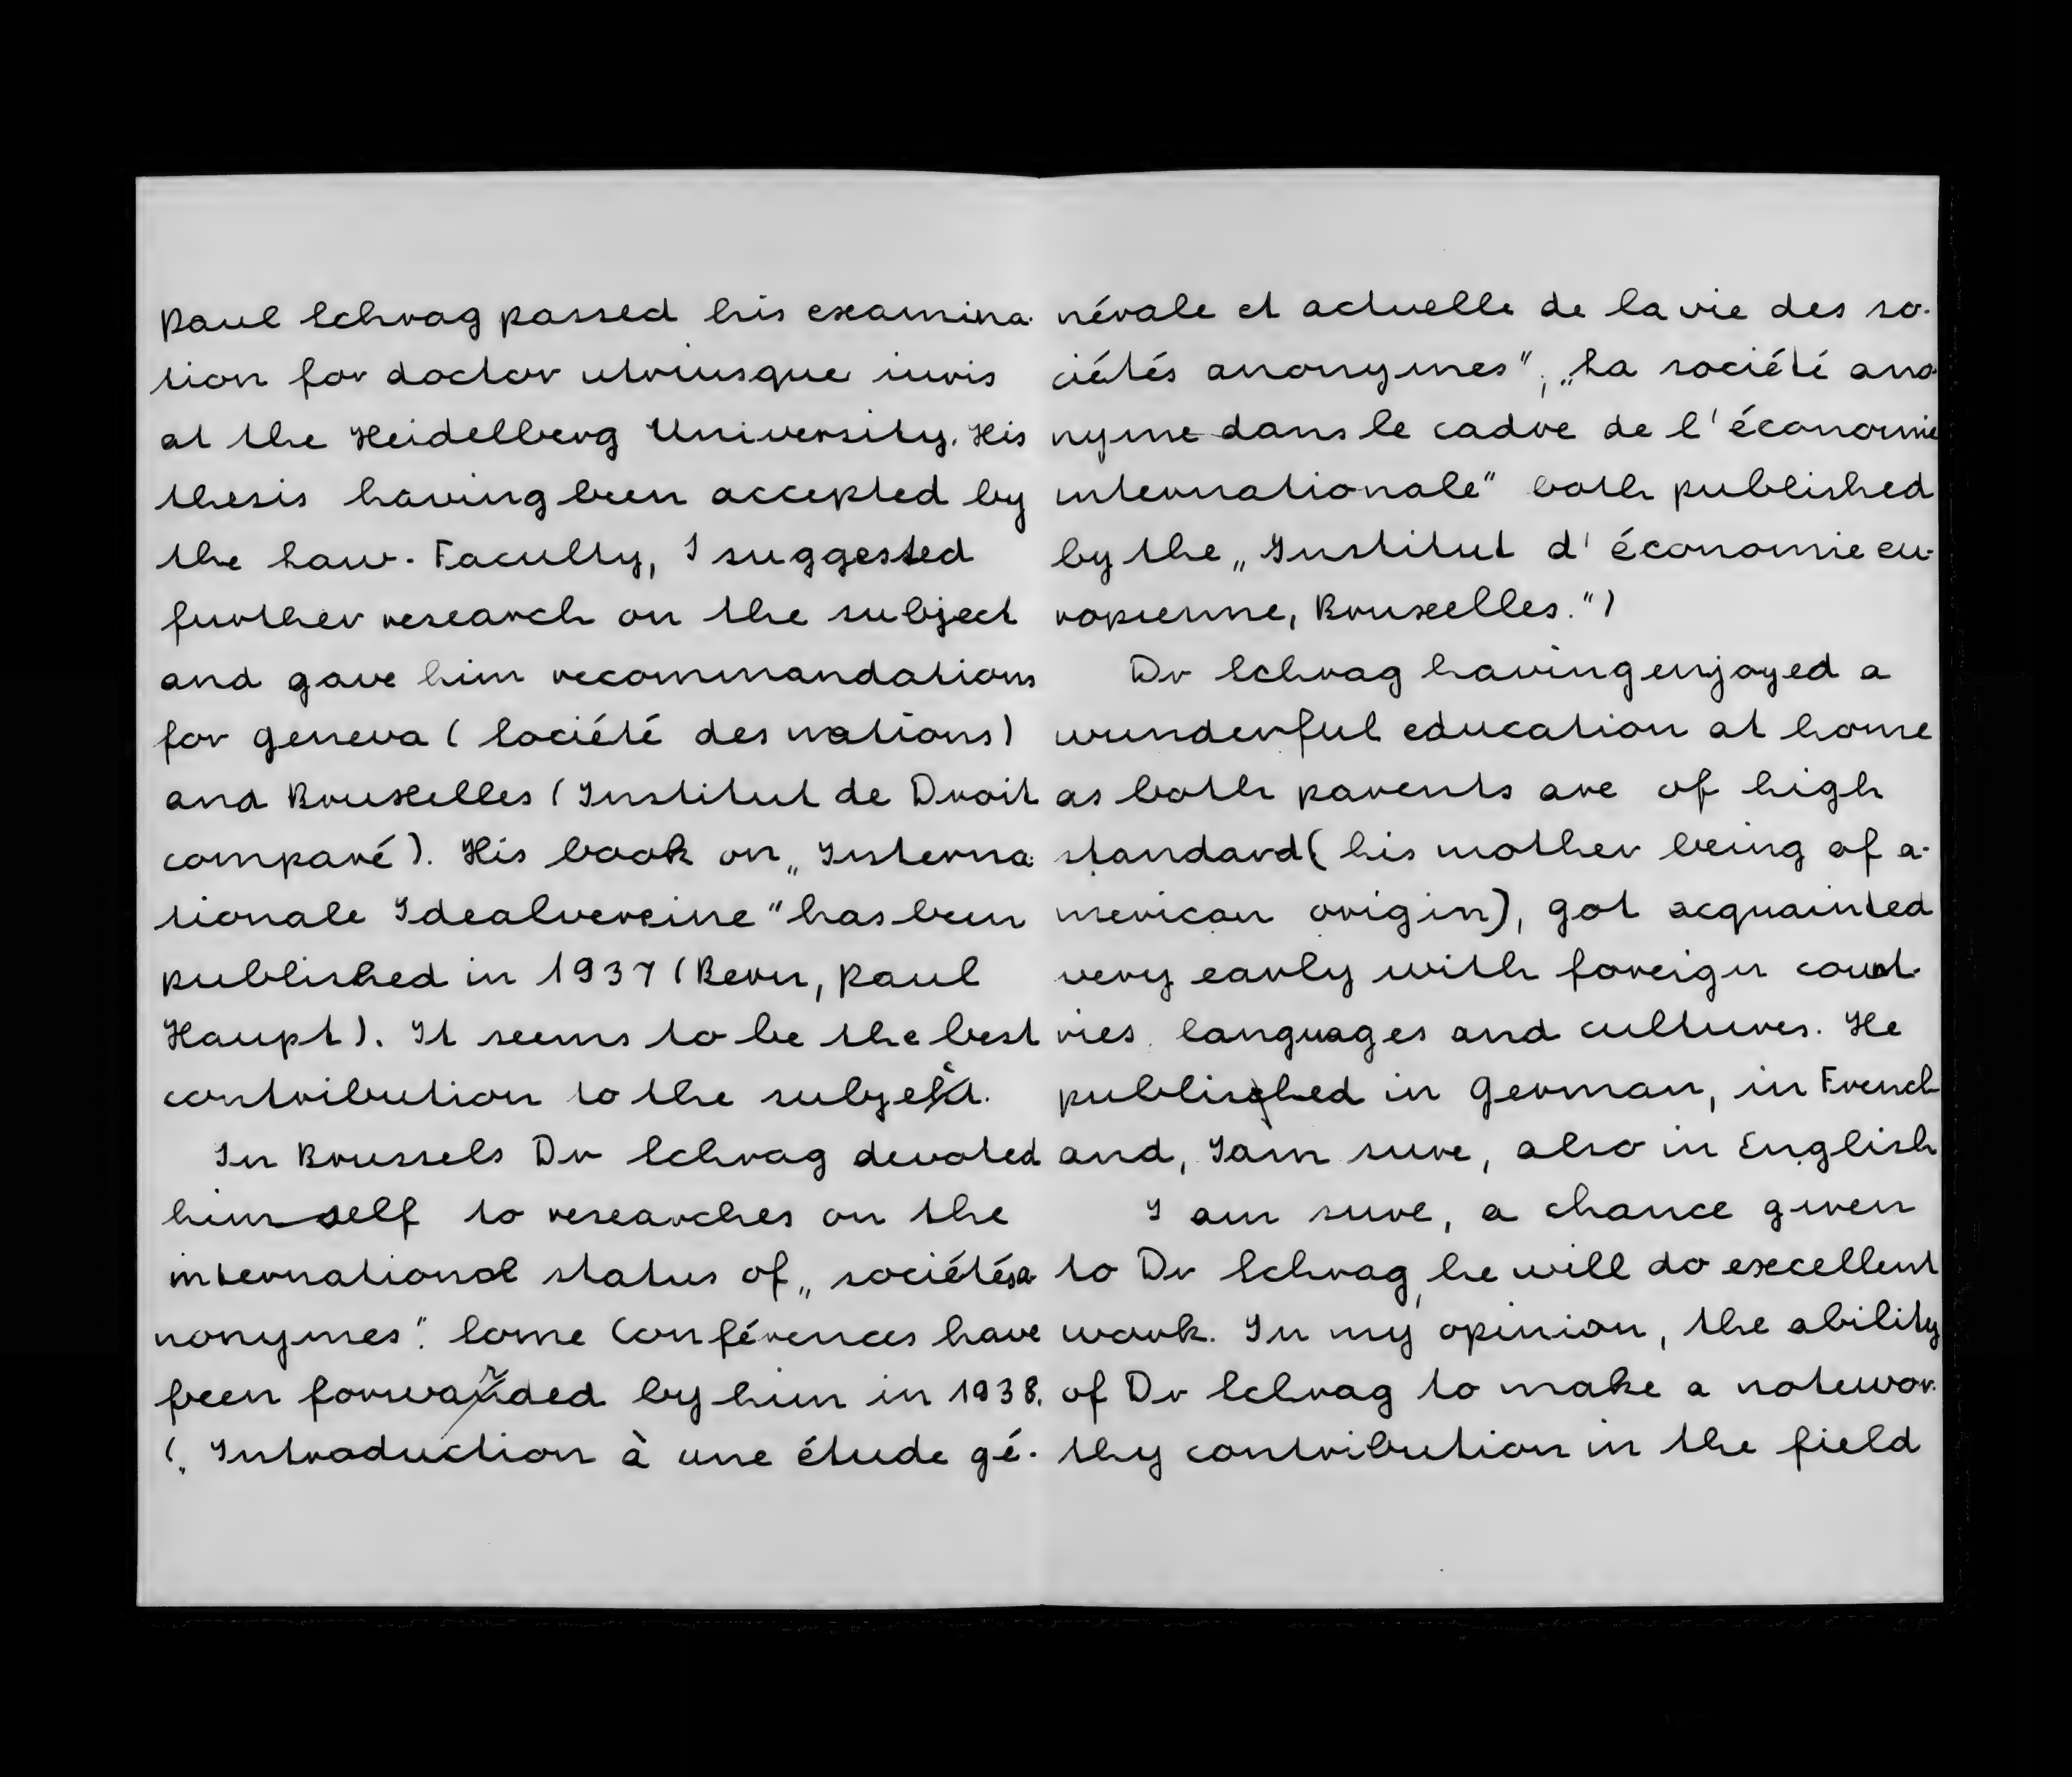 Paul Schrag passed his examina-
tion for doctor utriusque iuris
at the Heidelberg University. His
thesis having been accepted by
the Law-Faculty, I suggested
further research on the subject
and gave him recommandations
for Geneva (Société des nations)
and Bruxelles (Institut de Droit
comparé). His book on „Interna-
tionale Idealvereine" has been
published in 1937 (Bern, Paul
Haupt). It seems to be the best
contribution to the subject.
In Brussels Dr Schrag devoted
himself to researches on the
international status of „sociétés a-
nonymes". Some Conférences have
been forwarded by him in 1938.
(„Introduction à une étude gé-
nérale et actuelle de la vie des so-
ciétés anonymes", „La société ano-
nyme dans le cadre de l'économie
internationale" both published
by the „Institut d'économie eu-
ropienne, Bruxelles.")
Dr Schrag having enjoyed a
wunderful education at home
as both parents are of high
standard (his mother being of a-
merican origin), got acquainted
very early with foreign count-
ries, languages and cultures. He
published in German, in French
and, I am sure, also in English
I am sure, a chance given
to Dr Schrag, he will do execellent
work. In my opinion, the ability
of Dr Schrag to make a notewor-
thy contribution in the field